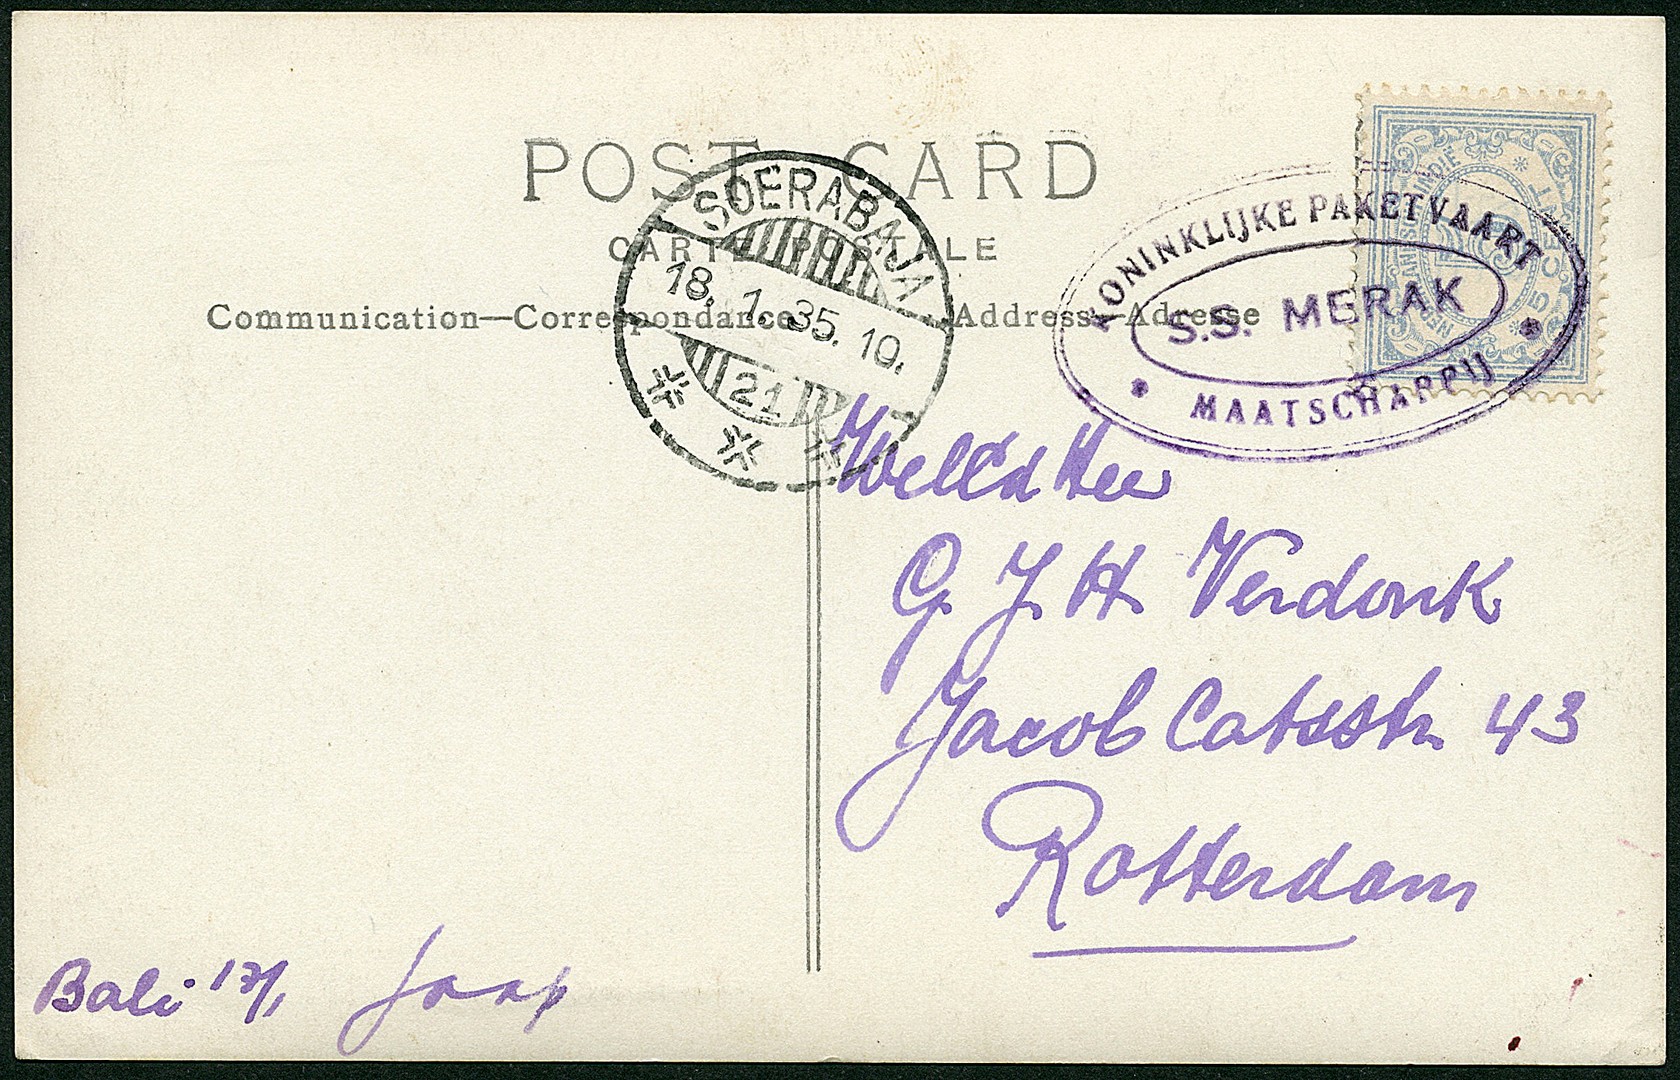 POST CARD
CARTE POSTALE
Communication—Correspondance
Address—Adresse
SOERABAJA
18. 1. 35. 10.
21
KONINKLIJKE PAKETVAART
S.S. MERAK
MAATSCHAPPIJ
5 CENT
G J H Verdonk
Jacob Catsstr 43
Rotterdam
Bali 17/1 Jaap